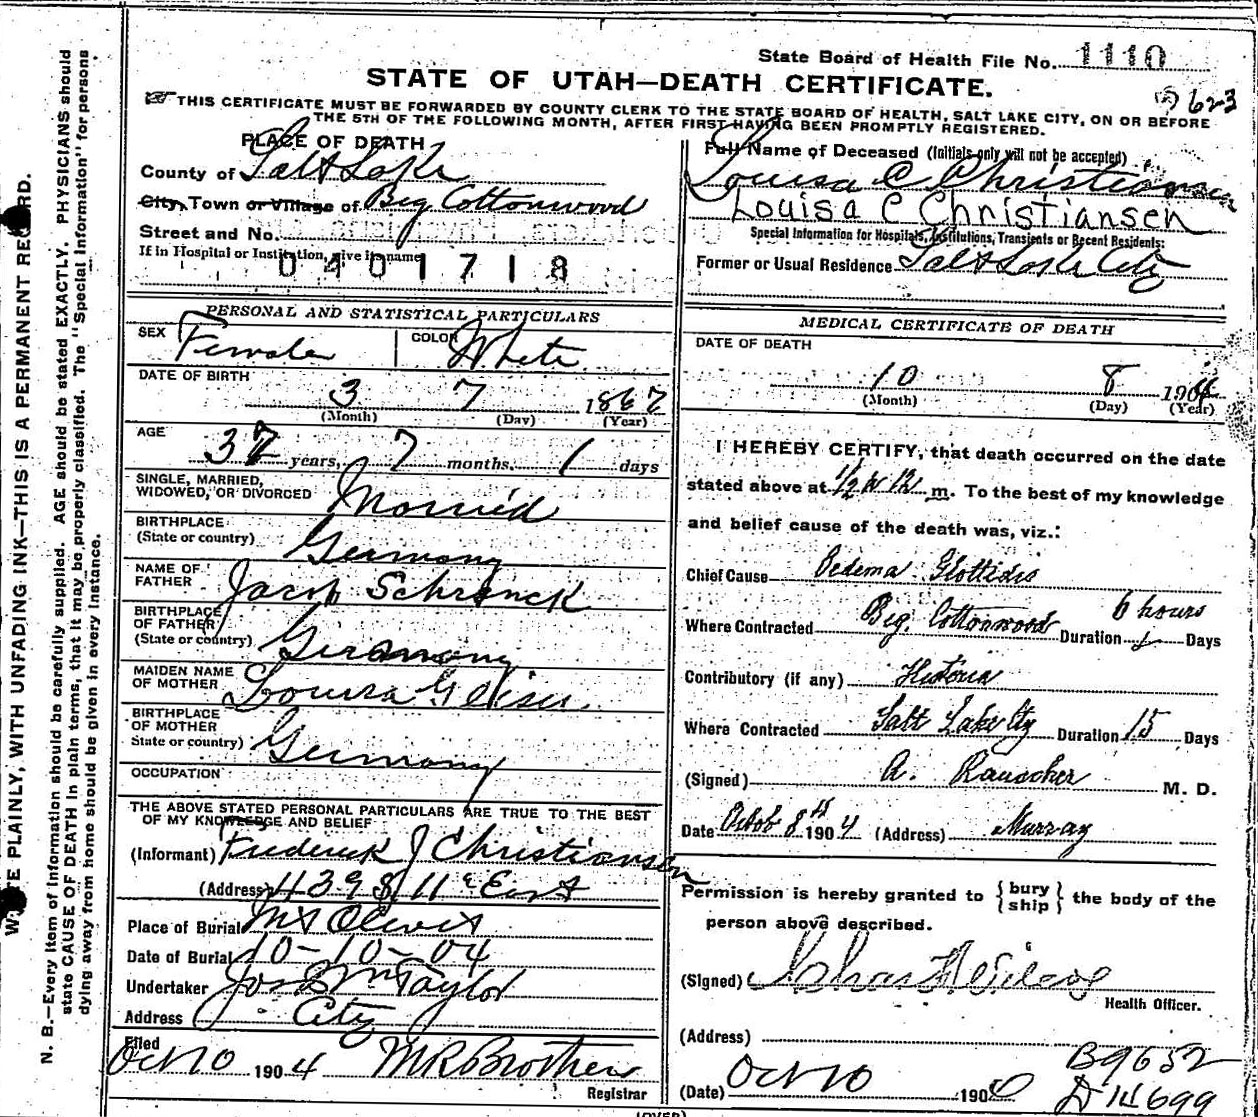 State Board of Health File No. 1110
STATE OF UTAH—DEATH CERTIFICATE.
623
THIS CERTIFICATE MUST BE FORWARDED BY COUNTY CLERK TO THE STATE BOARD OF HEALTH, SALT LAKE CITY, ON OR BEFORE
THE 5TH OF THE FOLLOWING MONTH, AFTER FIRST HAVING BEEN PROMPTLY REGISTERED.
PLACE OF DEATH
County of Salt Lake
City, Town or Village of Big Cottonwood
Street and No.
If in Hospital or Institution, give its name
0401718
Full Name of Deceased (Initials only will not be accepted)
Louisa C Christiansen
Louisa C Christiansen
Special Information for Hospitals, Institutions, Transients or Recent Residents:
Former or Usual Residence Salt Lake City
PERSONAL AND STATISTICAL PARTICULARS
SEX Female COLOR White
DATE OF BIRTH
3 7 1867
(Month) (Day) (Year)
AGE
37 years, 7 months. 1 days
SINGLE, MARRIED,
WIDOWED, OR DIVORCED Married
BIRTHPLACE
(State or country) Germany
NAME OF
FATHER Jacob Schrenck
BIRTHPLACE
OF FATHER
(State or country) Germany
MAIDEN NAME
OF MOTHER Louisa
BIRTHPLACE
OF MOTHER
State or country) Germany
OCCUPATION
THE ABOVE STATED PERSONAL PARTICULARS ARE TRUE TO THE BEST
OF MY KNOWLEDGE AND BELIEF
(Informant) Frederick J Christiansen
(Address) 11 East
Place of Burial Mt Olivet
Date of Burial 10-10-04
Undertaker Jos Wm Taylor
Address City
Filed
Oct 10 1904 M R Brothers
Registrar
MEDICAL CERTIFICATE OF DEATH
DATE OF DEATH
10 8 1904
(Month) (Day) (Year)
I HEREBY CERTIFY, that death occurred on the date
stated above at m. To the best of my knowledge
and belief cause of the death was, viz.:
Chief Cause Oedema Glottidis
6 hours
Where Contracted Big Cottonwood Duration Days
Contributory (if any) Histeria
Where Contracted Salt Lake Cty Duration 15 Days
(Signed) A. Rauscher M. D.
Date Octob 8th 1904 (Address) Murray
Permission is hereby granted to { bury
ship } the body of the
person above described.
(Signed) Chas
Health Officer.
(Address)
B9652
(Date) Oct 10 190
D 14699
(OVER)
PLAINLY, WITH UNFADING INK—THIS IS A PERMANENT RECORD.
N. B.—Every item of information should be carefully supplied. AGE should be stated EXACTLY. PHYSICIANS should
state CAUSE OF DEATH in plain terms, that it may be properly classified. The "Special Information" for persons
dying away from home should be given in every instance.